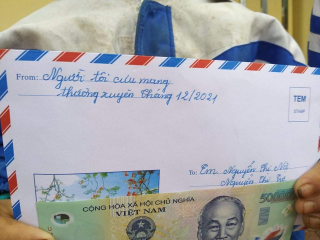 From: Người tôi cưu mang
thường xuyên Tháng 12/2021
TEM
STAMP
To: Em Nguyễn Thị Nở
Nguyễn Thị
CỘNG HÒA XÃ HỘI CHỦ NGHĨA
VIỆT NAM